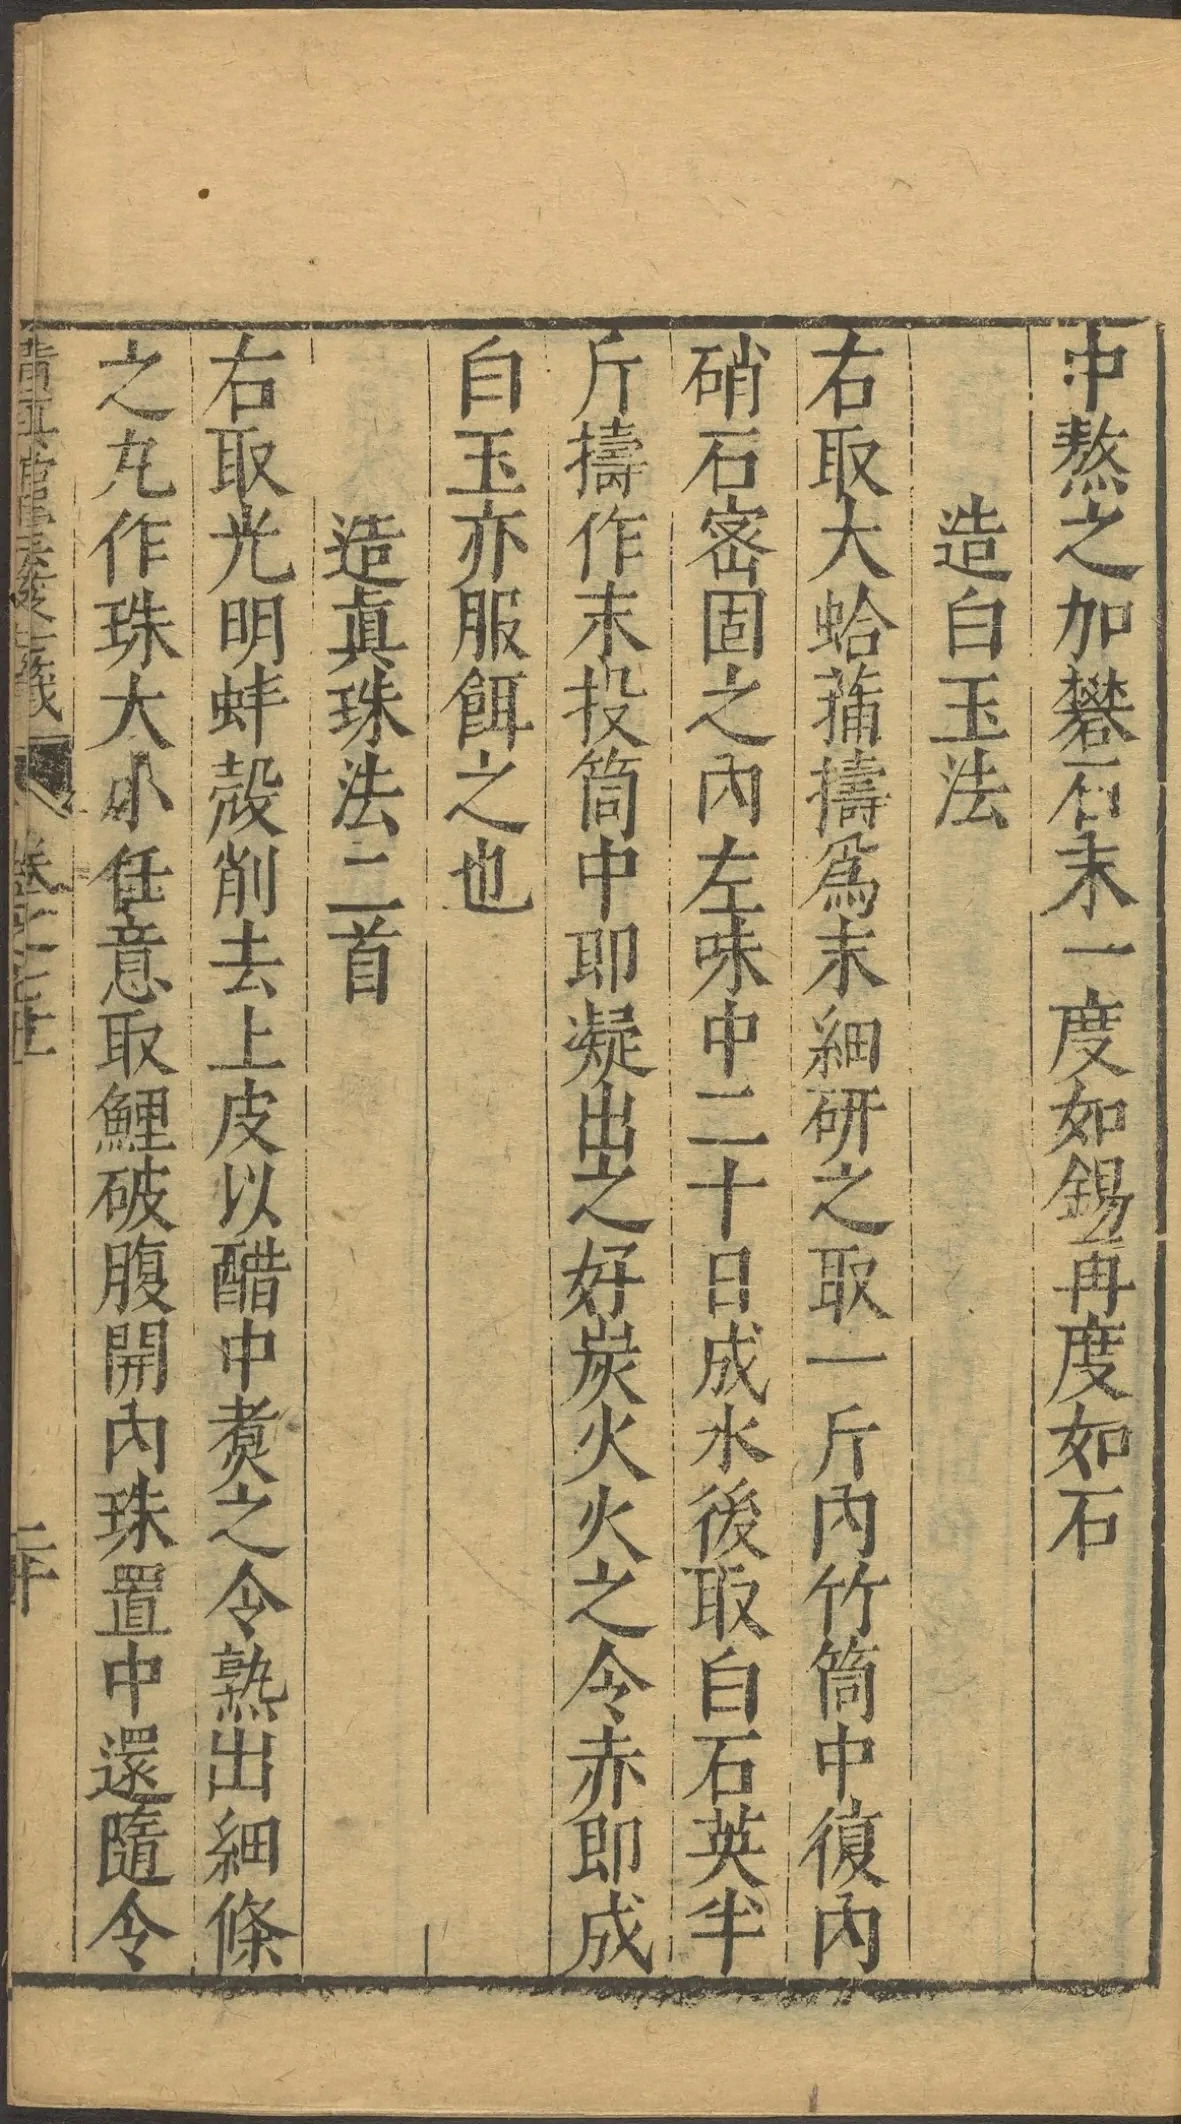 中熬之加礬石末一度如錫再度如石
造白玉法
右取大蛤蒲擣為末細研之取一斤內竹筒中復內
硝石密固之內左味中二十日成水後取白石英半
斤擣作末投筒中即凝出之好炭火火之令赤即成
白玉亦服餌之也
造眞珠法二首
右取光明蚌殼削去上皮以醋中煑之令熟出細條
之丸作珠大小任意取鯉破腹開內珠置中還隨令